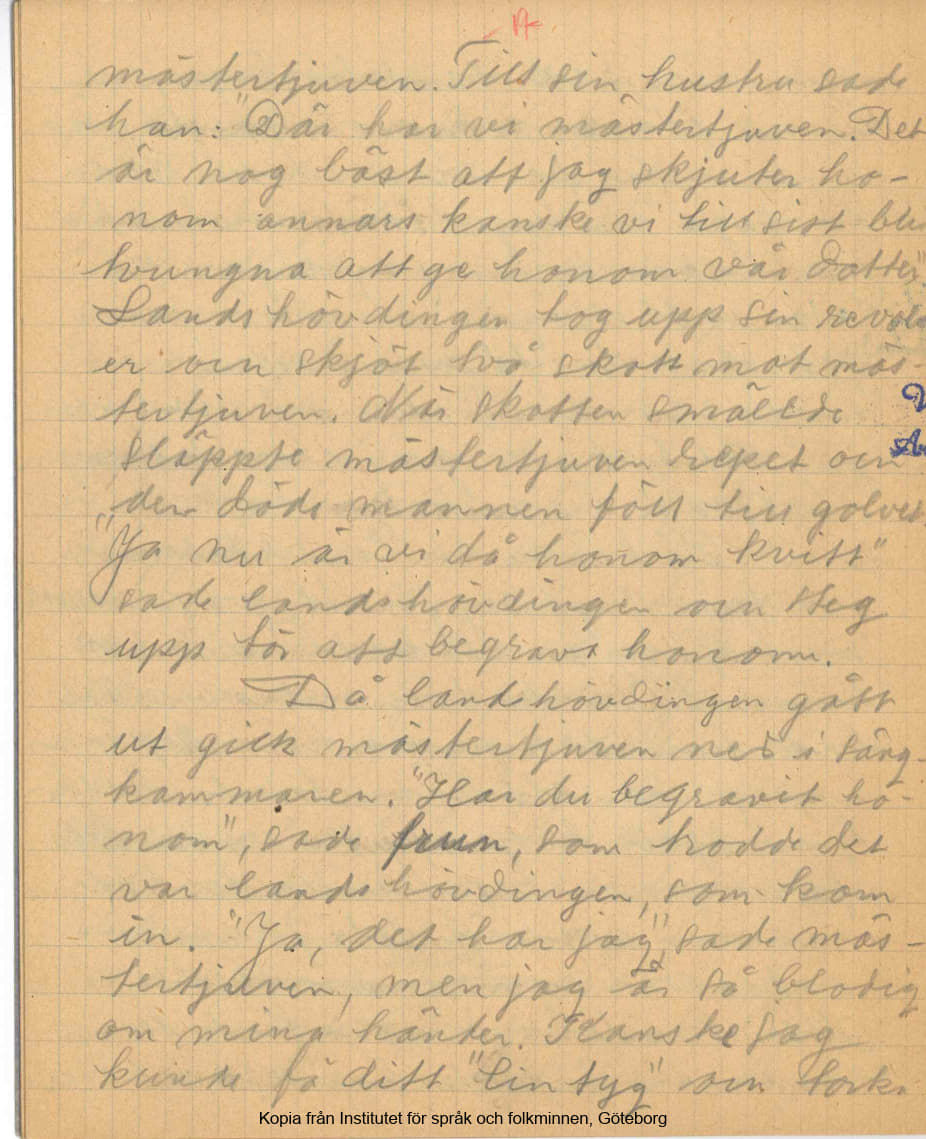 17
mästertjuven. Till sin hustru sade
han: "Där har vi mästertjuven. Det
är nog bäst att jag skjuter ho-
nom annars kanske vi till sist bli
tvungna att ge honom vår dotter".
Landshövdingen tog upp sin revolv
er och skjöt två skott mot mäs-
tertjuven. När skotten smällde
släppte mästertjuven repet och
den döde mannen föll till golvet.
"Ja nu är vi då honom kvitt"
sade landshövdingen och steg
upp för att begrava honom.
Då landshövdingen gått
ut gick mästertjuven ned i säng-
kammaren. "Har du begravit ho-
nom", sade frun, som trodde det
var landshövdingen, som kom
in. "Ja, det har jag", sade mäs-
tertjuven, men jag är så blodig
om mina händer. Kanske jag
kunde få ditt "lintyg" och torka
Kopia från Institutet för språk och folkminnen, Göteborg